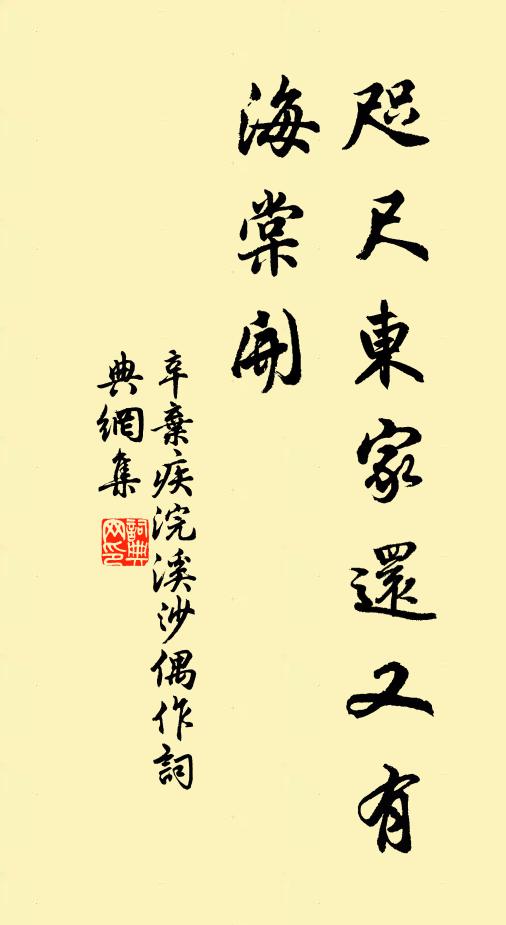 咫尺東家還又有
海棠開
辛棄疾浣溪沙偶作詞
典網集
詞典網印